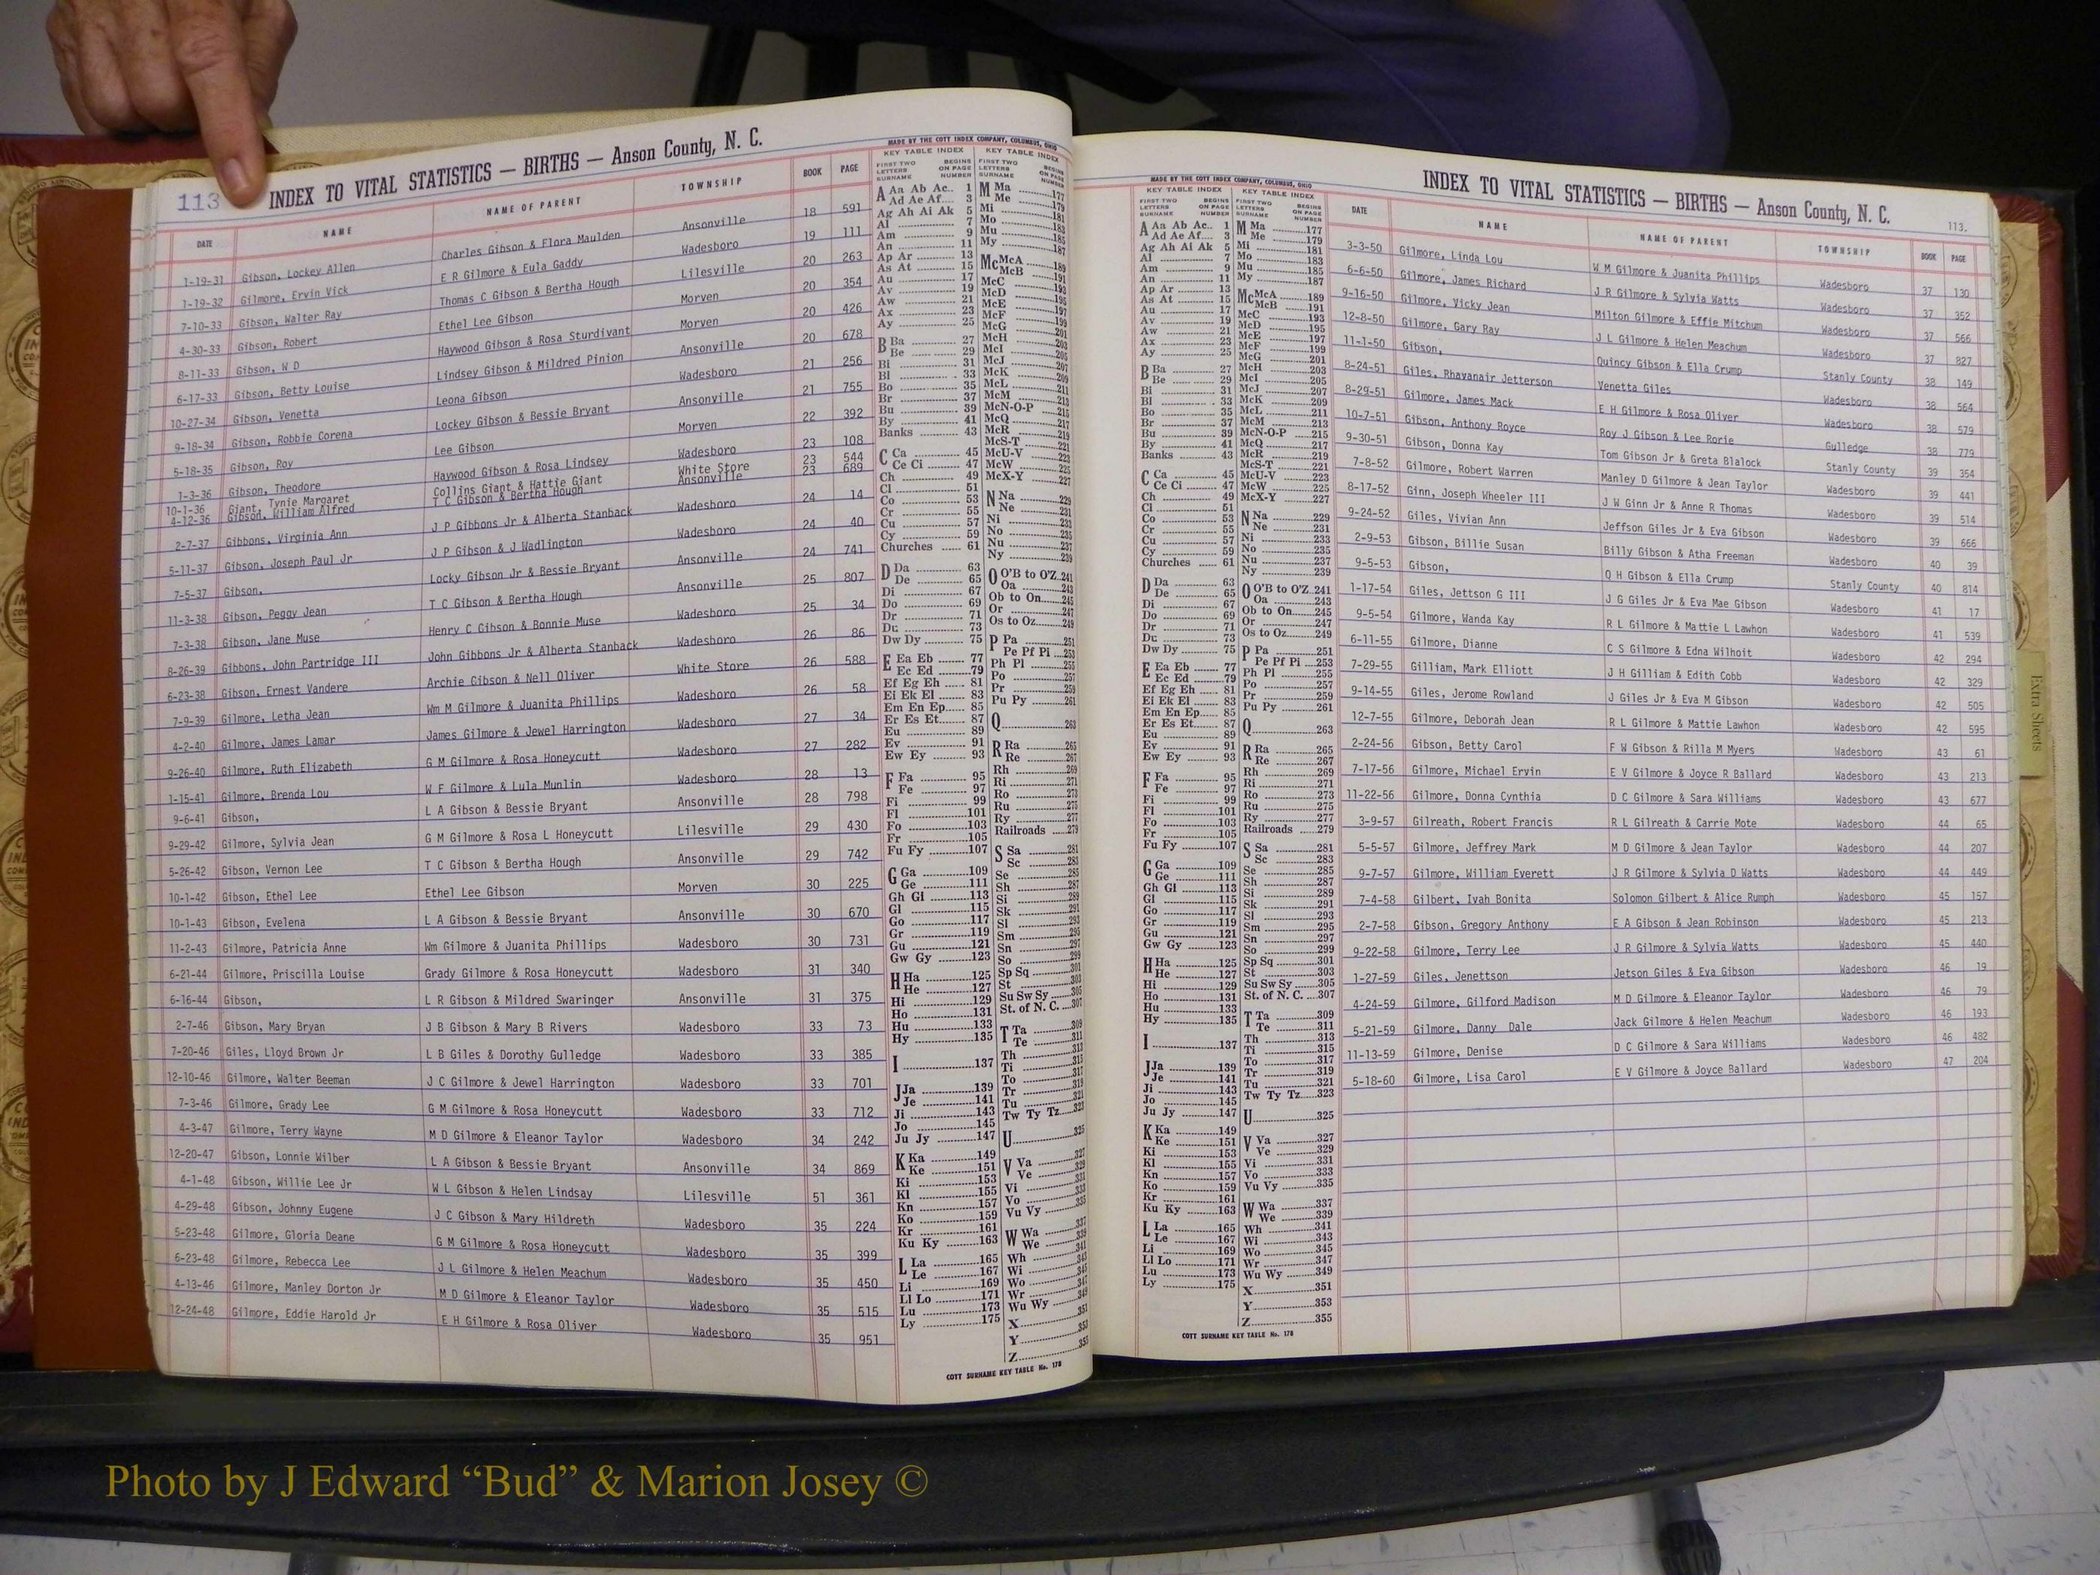 113
INDEX TO VITAL STATISTICS — BIRTHS — Anson County, N. C.
DATE NAME NAME OF PARENT TOWNSHIP BOOK PAGE
1-19-31 Gibson, Lockey Allen Charles Gibson & Flora Maulden Ansonville 18 591
1-19-32 Gilmore, Ervin Vick E R Gilmore & Eula Gaddy Wadesboro 19 111
7-10-33 Gibson, Walter Ray Thomas C Gibson & Bertha Hough Lilesville 20 263
4-30-33 Gibson, Robert Ethel Lee Gibson Morven 20 354
8-11-33 Gibson, W D Haywood Gibson & Rosa Sturdivant Morven 20 426
6-17-33 Gibson, Betty Louise Lindsey Gibson & Mildred Pinion Ansonville 20 678
10-27-34 Gibson, Venetta Leona Gibson Wadesboro 21 256
9-18-34 Gibson, Robbie Corena Lockey Gibson & Bessie Bryant Ansonville 21 755
5-18-35 Gibson, Roy Lee Gibson Morven 22 392
1-3-36 Gibson, Theodore Haywood Gibson & Rosa Lindsey Wadesboro 23 108
10-1-36 Giant, Tynie Margaret Collins Giant & Hattie Giant White Store 23 544
4-12-36 Gibson, William Alfred T C Gibson & Bertha Hough Ansonville 23 689
2-7-37 Gibbons, Virginia Ann J P Gibbons Jr & Alberta Stanback Wadesboro 24 14
5-11-37 Gibson, Joseph Paul Jr J P Gibson & J Wadlington Wadesboro 24 40
7-5-37 Gibson, Locky Gibson Jr & Bessie Bryant Ansonville 24 741
11-3-38 Gibson, Peggy Jean T C Gibson & Bertha Hough Ansonville 25 807
7-3-38 Gibson, Jane Muse Henry C Gibson & Bonnie Muse Wadesboro 25 34
8-26-39 Gibbons, John Partridge III John Gibbons Jr & Alberta Stanback Wadesboro 26 86
6-23-38 Gibson, Ernest Vandere Archie Gibson & Nell Oliver White Store 26 588
7-9-39 Gilmore, Letha Jean Wm M Gilmore & Juanita Phillips Wadesboro 26 58
4-2-40 Gilmore, James Lamar James Gilmore & Jewel Harrington Wadesboro 27 34
9-26-40 Gilmore, Ruth Elizabeth G M Gilmore & Rosa Honeycutt Wadesboro 27 282
1-15-41 Gilmore, Brenda Lou W F Gilmore & Lula Munlin Wadesboro 28 13
9-6-41 Gibson, L A Gibson & Bessie Bryant Ansonville 28 798
9-29-42 Gilmore, Sylvia Jean G M Gilmore & Rosa L Honeycutt Lilesville 29 430
5-26-42 Gibson, Vernon Lee T C Gibson & Bertha Hough Ansonville 29 742
10-1-42 Gibson, Ethel Lee Ethel Lee Gibson Morven 30 225
10-1-43 Gibson, Evelena L A Gibson & Bessie Bryant Ansonville 30 670
11-2-43 Gilmore, Patricia Anne Wm Gilmore & Juanita Phillips Wadesboro 30 731
6-21-44 Gilmore, Priscilla Louise Grady Gilmore & Rosa Honeycutt Wadesboro 31 340
6-16-44 Gibson, L R Gibson & Mildred Swaringer Ansonville 31 375
2-7-46 Gibson, Mary Bryan J B Gibson & Mary B Rivers Wadesboro 33 73
7-20-46 Giles, Lloyd Brown Jr L B Giles & Dorothy Gulledge Wadesboro 33 385
12-10-46 Gilmore, Walter Beeman J C Gilmore & Jewel Harrington Wadesboro 33 701
7-3-46 Gilmore, Grady Lee G M Gilmore & Rosa Honeycutt Wadesboro 33 712
4-3-47 Gilmore, Terry Wayne M D Gilmore & Eleanor Taylor Wadesboro 34 242
12-20-47 Gibson, Lonnie Wilber L A Gibson & Bessie Bryant Ansonville 34 869
4-1-48 Gibson, Willie Lee Jr W L Gibson & Helen Lindsay Lilesville 51 361
4-29-48 Gibson, Johnny Eugene J C Gibson & Mary Hildreth Wadesboro 35 224
5-23-48 Gilmore, Gloria Deane G M Gilmore & Rosa Honeycutt Wadesboro 35 399
6-23-48 Gilmore, Rebecca Lee J L Gilmore & Helen Meachum Wadesboro 35 450
4-13-46 Gilmore, Manley Dorton Jr M D Gilmore & Eleanor Taylor Wadesboro 35 515
12-24-48 Gilmore, Eddie Harold Jr E H Gilmore & Rosa Oliver Wadesboro 35 951
MADE BY THE COTT INDEX COMPANY, COLUMBUS, OHIO
KEY TABLE INDEX KEY TABLE INDEX
COTT SURNAME KEY TABLE No. 178
MADE BY THE COTT INDEX COMPANY, COLUMBUS, OHIO
KEY TABLE INDEX KEY TABLE INDEX
FIRST TWO LETTERS SURNAME BEGINS ON PAGE NUMBER
A Aa Ab Ac.. 1
Ad Ae Af.... 3
Ag Ah Ai Ak 5
Al 7
Am 9
An 11
Ap Ar 13
As At 15
Au 17
Av 19
Aw 21
Ax 23
Ay 25
B Ba 27
Be 29
Bi 31
Bl 33
Bo 35
Br 37
Bu 39
By 41
Banks 43
C Ca 45
Ce Ci 47
Ch 49
Cl 51
Co 53
Cr 55
Cu 57
Cy 59
Churches 61
D Da 63
De 65
Di 67
Do 69
Dr 71
Du 73
Dw Dy 75
E Ea Eb 77
Ec Ed 79
Ef Eg Eh 81
Ei Ek El 83
Em En Ep 85
Er Es Et 87
Eu 89
Ev 91
Ew Ey 93
F Fa 95
Fe 97
Fi 99
Fl 101
Fo 103
Fr 105
Fu Fy 107
G Ga 109
Ge 111
Gh Gi 113
Gl 115
Go 117
Gr 119
Gu 121
Gw Gy 123
H Ha 125
He 127
Hi 129
Ho 131
Hu 133
Hy 135
I 137
J Ja 139
Je 141
Ji 143
Jo 145
Ju Jy 147
K Ka 149
Ke 151
Ki 153
Kl 155
Kn 157
Ko 159
Kr 161
Ku Ky 163
L La 165
Le 167
Li 169
Ll Lo 171
Lu 173
Ly 175
M Ma 177
Me 179
Mi 181
Mo 183
Mu 185
My 187
Mc McA 189
McB 191
McC 193
McD 195
McE 197
McF 199
McG 201
McH 203
McI 205
McJ 207
McK 209
McL 211
McM 213
McN-O-P 215
McQ 217
McR 219
McS-T 221
McU-V 223
McW 225
McX-Y 227
N Na 229
Ne 231
Ni 233
No 235
Nu 237
Ny 239
O O'B to O'Z 241
Oa 243
Ob to On 245
Or 247
Os to Oz 249
P Pa 251
Pe Pf Pi 253
Ph Pl 255
Po 257
Pr 259
Pu Py 261
Q 263
R Ra 265
Re 267
Rh 269
Ri 271
Ro 273
Ru 275
Ry 277
Railroads 279
S Sa 281
Sc 283
Se 285
Sh 287
Si 289
Sk 291
Sl 293
Sm 295
Sn 297
So 299
Sp Sq 301
St 303
Su Sw Sy 305
St. of N. C. 307
T Ta 309
Te 311
Th 313
Ti 315
To 317
Tr 319
Tu 321
Tw Ty Tz 323
U 325
V Va 327
Ve 329
Vi 331
Vo 333
Vu Vy 335
W Wa 337
We 339
Wh 341
Wi 343
Wo 345
Wr 347
Wu Wy 349
X 351
Y 353
Z 355
COTT SURNAME KEY TABLE No. 178
INDEX TO VITAL STATISTICS — BIRTHS — Anson County, N. C.
113.
DATE NAME NAME OF PARENT TOWNSHIP BOOK PAGE
3-3-50 Gilmore, Linda Lou W M Gilmore & Juanita Phillips Wadesboro 37 130
6-6-50 Gilmore, James Richard J R Gilmore & Sylvia Watts Wadesboro 37 352
9-16-50 Gilmore, Vicky Jean Milton Gilmore & Effie Mitchum Wadesboro 37 566
12-8-50 Gilmore, Gary Ray J L Gilmore & Helen Meachum Wadesboro 37 827
11-1-50 Gibson, Quincy Gibson & Ella Crump Stanly County 38 149
8-24-51 Giles, Rhavanair Jetterson Venetta Giles Wadesboro 38 564
8-29-51 Gilmore, James Mack E H Gilmore & Rosa Oliver Wadesboro 38 579
10-7-51 Gibson, Anthony Royce Roy J Gibson & Lee Rorie Gulledge 38 779
9-30-51 Gibson, Donna Kay Tom Gibson Jr & Greta Blalock Stanly County 39 354
7-8-52 Gilmore, Robert Warren Manley D Gilmore & Jean Taylor Wadesboro 39 441
8-17-52 Ginn, Joseph Wheeler III J W Ginn Jr & Anne R Thomas Wadesboro 39 514
9-24-52 Giles, Vivian Ann Jeffson Giles Jr & Eva Gibson Wadesboro 39 666
2-9-53 Gibson, Billie Susan Billy Gibson & Atha Freeman Wadesboro 40 39
9-5-53 Gibson, Q H Gibson & Ella Crump Stanly County 40 814
1-17-54 Giles, Jettson G III J G Giles Jr & Eva Mae Gibson Wadesboro 41 17
9-5-54 Gilmore, Wanda Kay R L Gilmore & Mattie L Lawhon Wadesboro 41 539
6-11-55 Gilmore, Dianne C S Gilmore & Edna Wilhoit Wadesboro 42 294
7-29-55 Gilliam, Mark Elliott J H Gilliam & Edith Cobb Wadesboro 42 329
9-14-55 Giles, Jerome Rowland J Giles Jr & Eva M Gibson Wadesboro 42 505
12-7-55 Gilmore, Deborah Jean R L Gilmore & Mattie Lawhon Wadesboro 42 595
2-24-56 Gibson, Betty Carol F W Gibson & Rilla M Myers Wadesboro 43 61
7-17-56 Gilmore, Michael Ervin E V Gilmore & Joyce R Ballard Wadesboro 43 213
11-22-56 Gilmore, Donna Cynthia D C Gilmore & Sara Williams Wadesboro 43 677
3-9-57 Gilreath, Robert Francis R L Gilreath & Carrie Mote Wadesboro 44 65
5-5-57 Gilmore, Jeffrey Mark M D Gilmore & Jean Taylor Wadesboro 44 207
9-7-57 Gilmore, William Everett J R Gilmore & Sylvia D Watts Wadesboro 44 449
7-4-58 Gilbert, Ivah Bonita Solomon Gilbert & Alice Rumph Wadesboro 45 157
2-7-58 Gibson, Gregory Anthony E A Gibson & Jean Robinson Wadesboro 45 213
9-22-58 Gilmore, Terry Lee J R Gilmore & Sylvia Watts Wadesboro 45 440
1-27-59 Giles, Jenettson Jetson Giles & Eva Gibson Wadesboro 46 19
4-24-59 Gilmore, Gilford Madison M D Gilmore & Eleanor Taylor Wadesboro 46 79
5-21-59 Gilmore, Danny Dale Jack Gilmore & Helen Meachum Wadesboro 46 193
11-13-59 Gilmore, Denise D C Gilmore & Sara Williams Wadesboro 46 482
5-18-60 Gilmore, Lisa Carol E V Gilmore & Joyce Ballard Wadesboro 47 204
Extra Sheets
Photo by J Edward “Bud” & Marion Josey ©